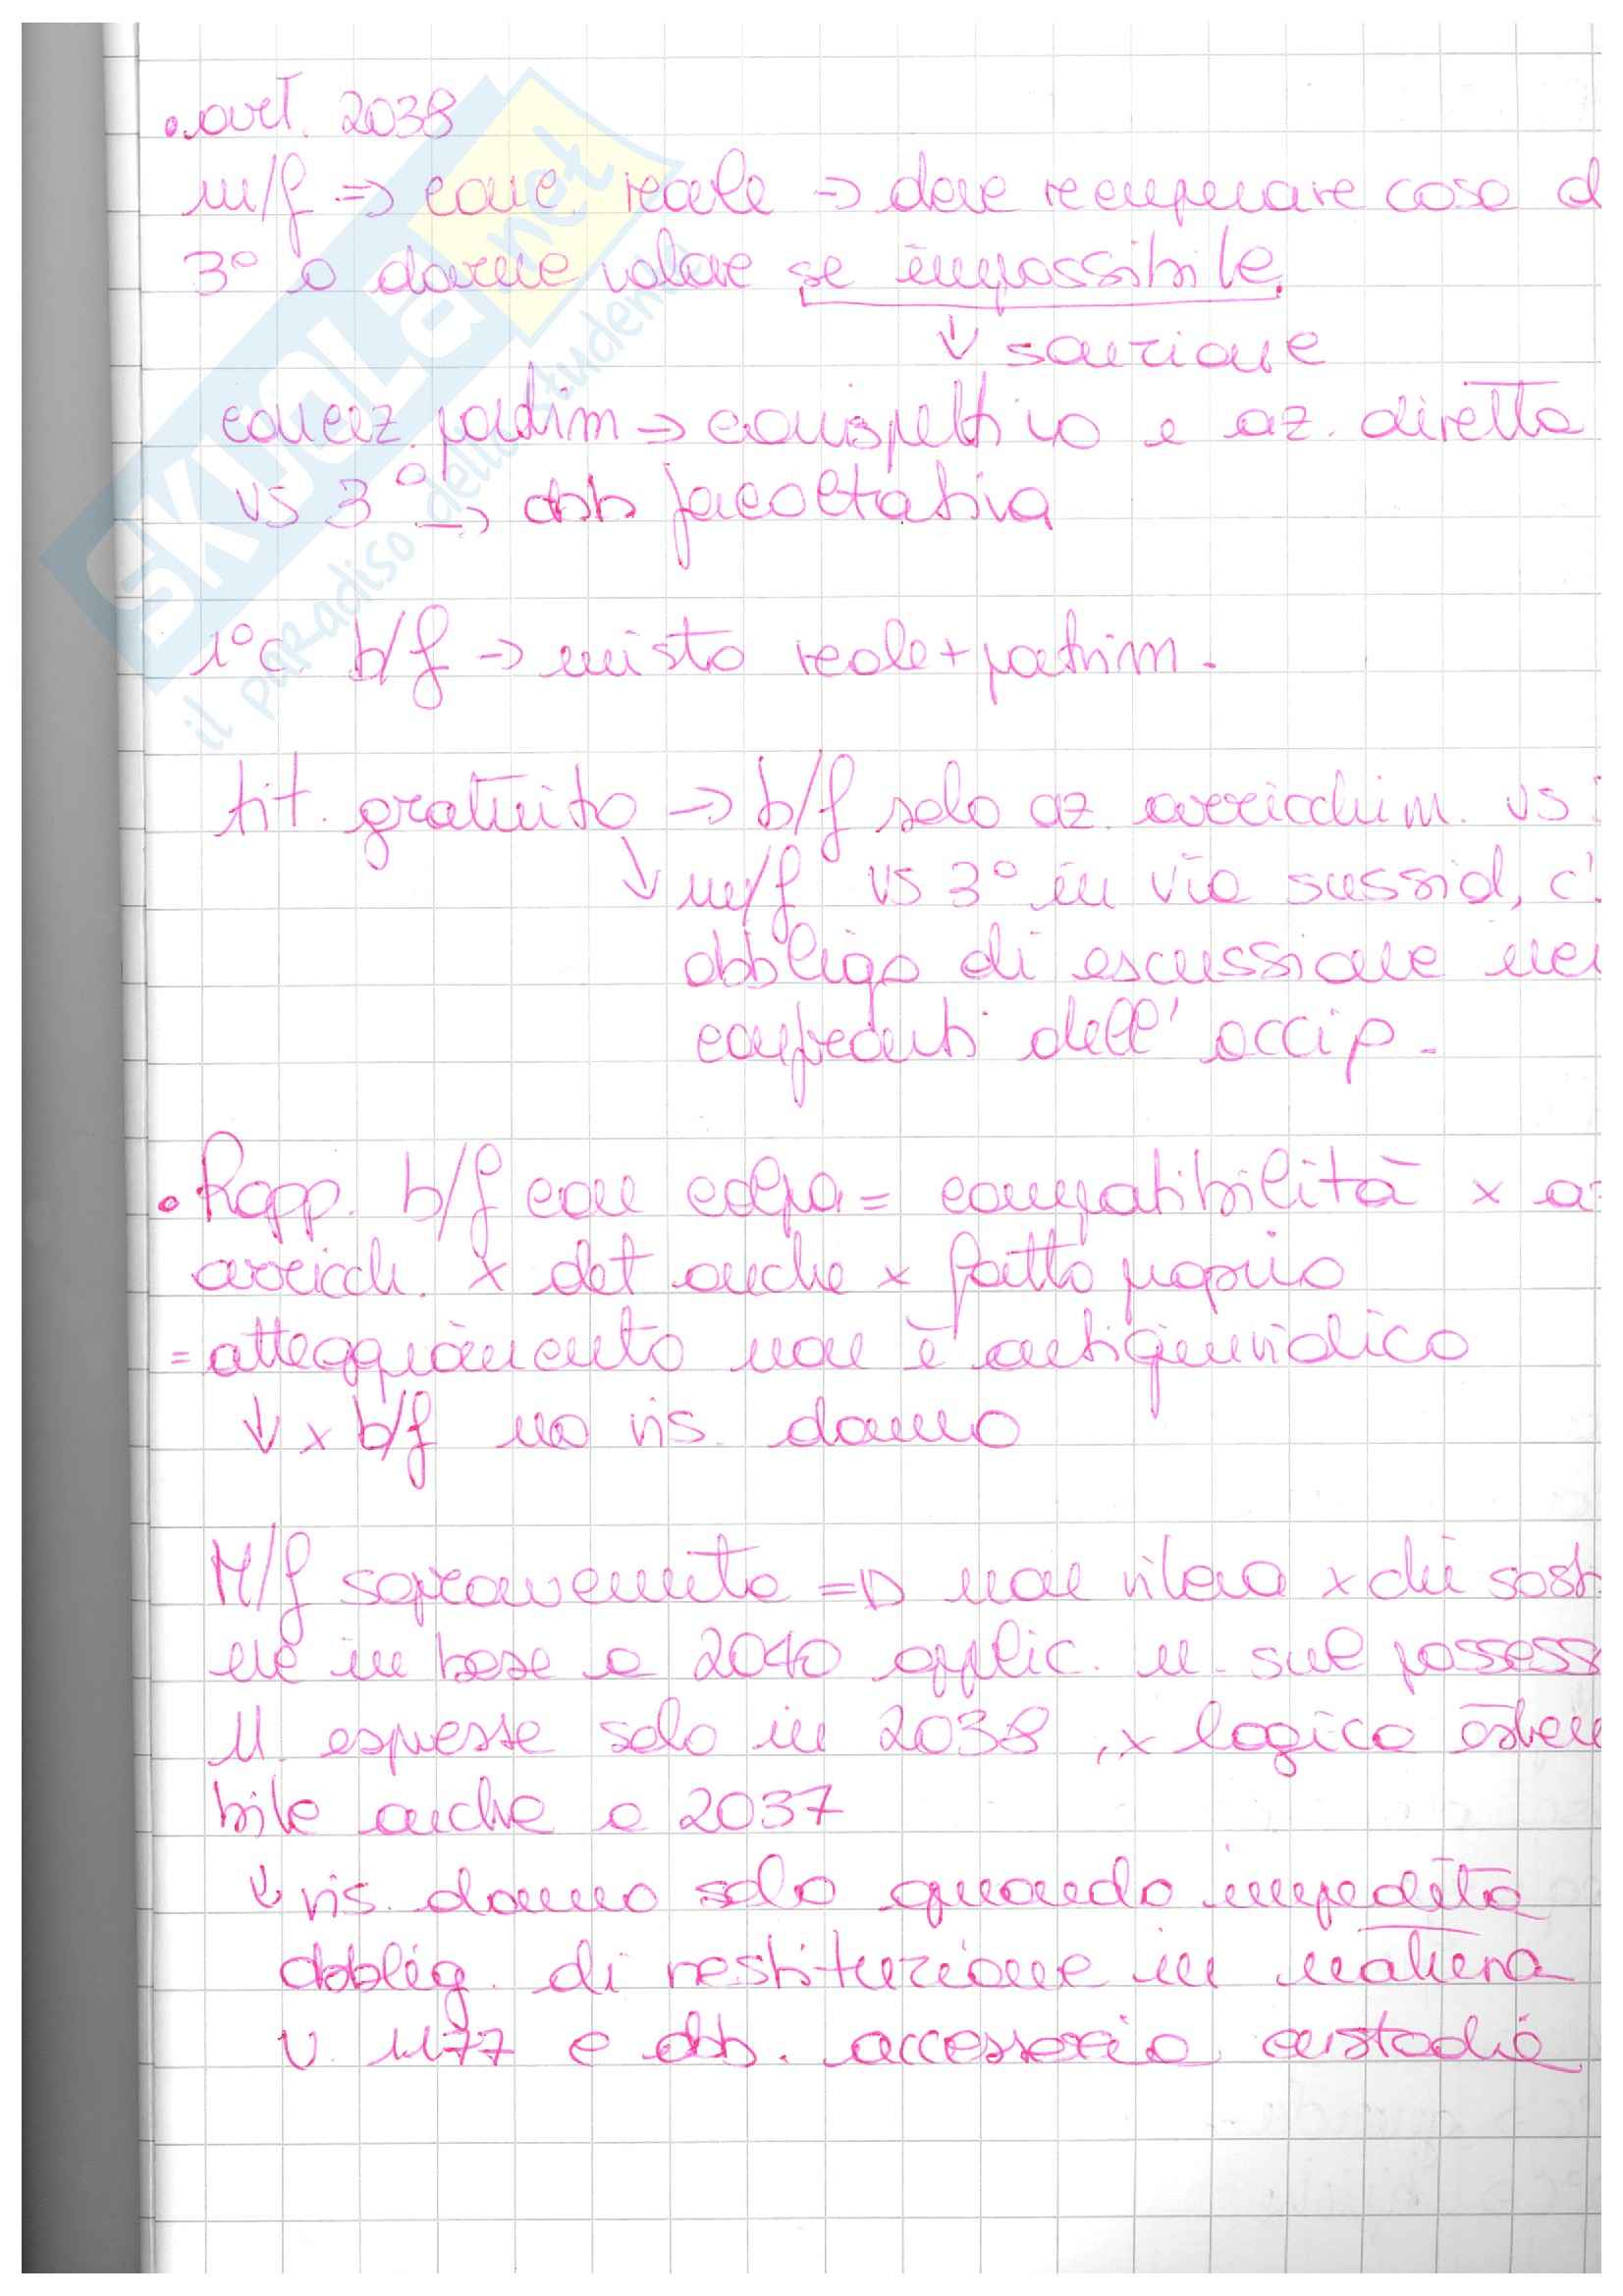 • art. 2038
m/f => conc. reale -> deve recuperare cosa d
3° o darne valore se impossibile
↓ sanzione
concez. patrim -> corrispettivo e az. diretta
vs 3° -> obb facoltativa
1°c b/f -> misto reale+patrim.
tit. gratuito -> b/f solo az. arricchim. vs
↓ m/f vs 3° in via sussid, c'
obbligo di escussione nei
confronti dell' accip.
• Rapp. b/f con colpa = compatibilità x a
arricch. x det anche x fatto proprio
= atteggiamento non è antigiuridico
↓ x b/f no ris. danno
M/f sopravvenuta => non rileva x chi sosti
ene in base a 2040 applic. n. sul possess
N. espresse solo in 2038, x logica esten
bile anche a 2037
↓ ris. danno solo quando impedita
obblig. di restituzione in natura
v. 1177 e obb. accessoria custodia
SKUOLA.net
il paradiso dello studente